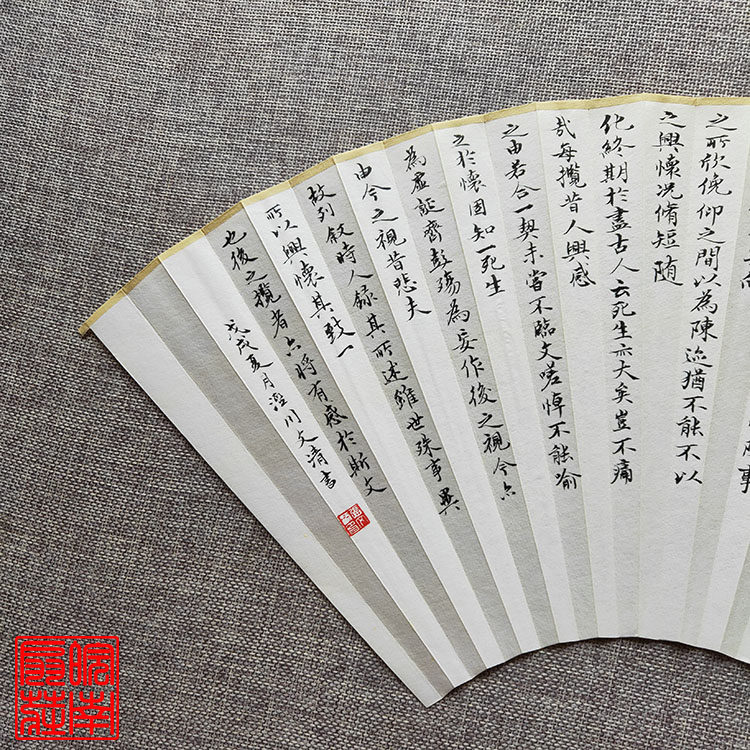 事
之所欣俛仰之間以為陳迹猶不能不以
之興懷況脩短隨
化終期於盡古人云死生亦大矣豈不痛
哉每攬昔人興感
之由若合一契未嘗不臨文嗟悼不能喻
之於懷固知一死生
為虛誕齊彭殤為妄作後之視今亦
由今之視昔悲夫
故列叙時人録其所述雖世殊事異
所以興懷其致一
也後之攬者亦將有感於斯文
戊戌夏月涇川文清書
皖南扇莊